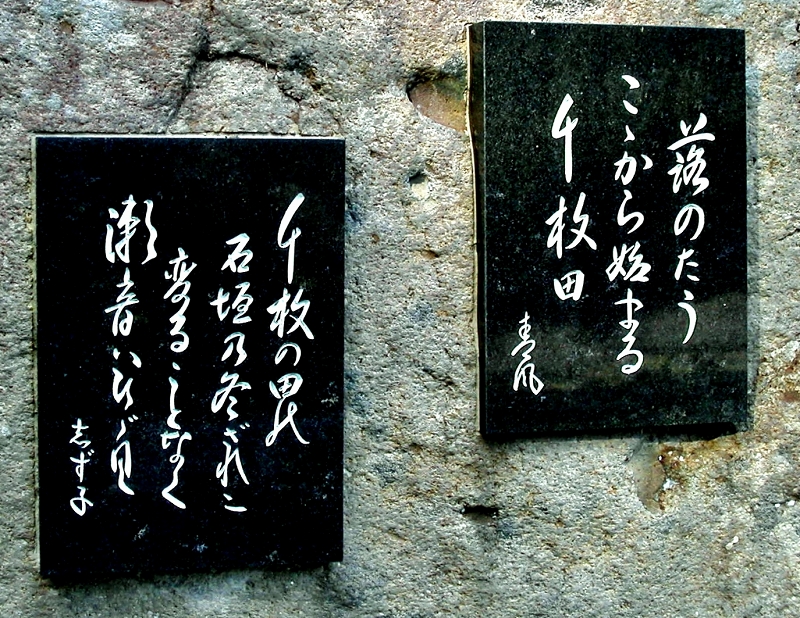 蕗のたう
こゝから始まる
千枚田
春風
千枚の田の
石垣乃冬ざれに
変ることなく
潮音はひゞく
志ず子